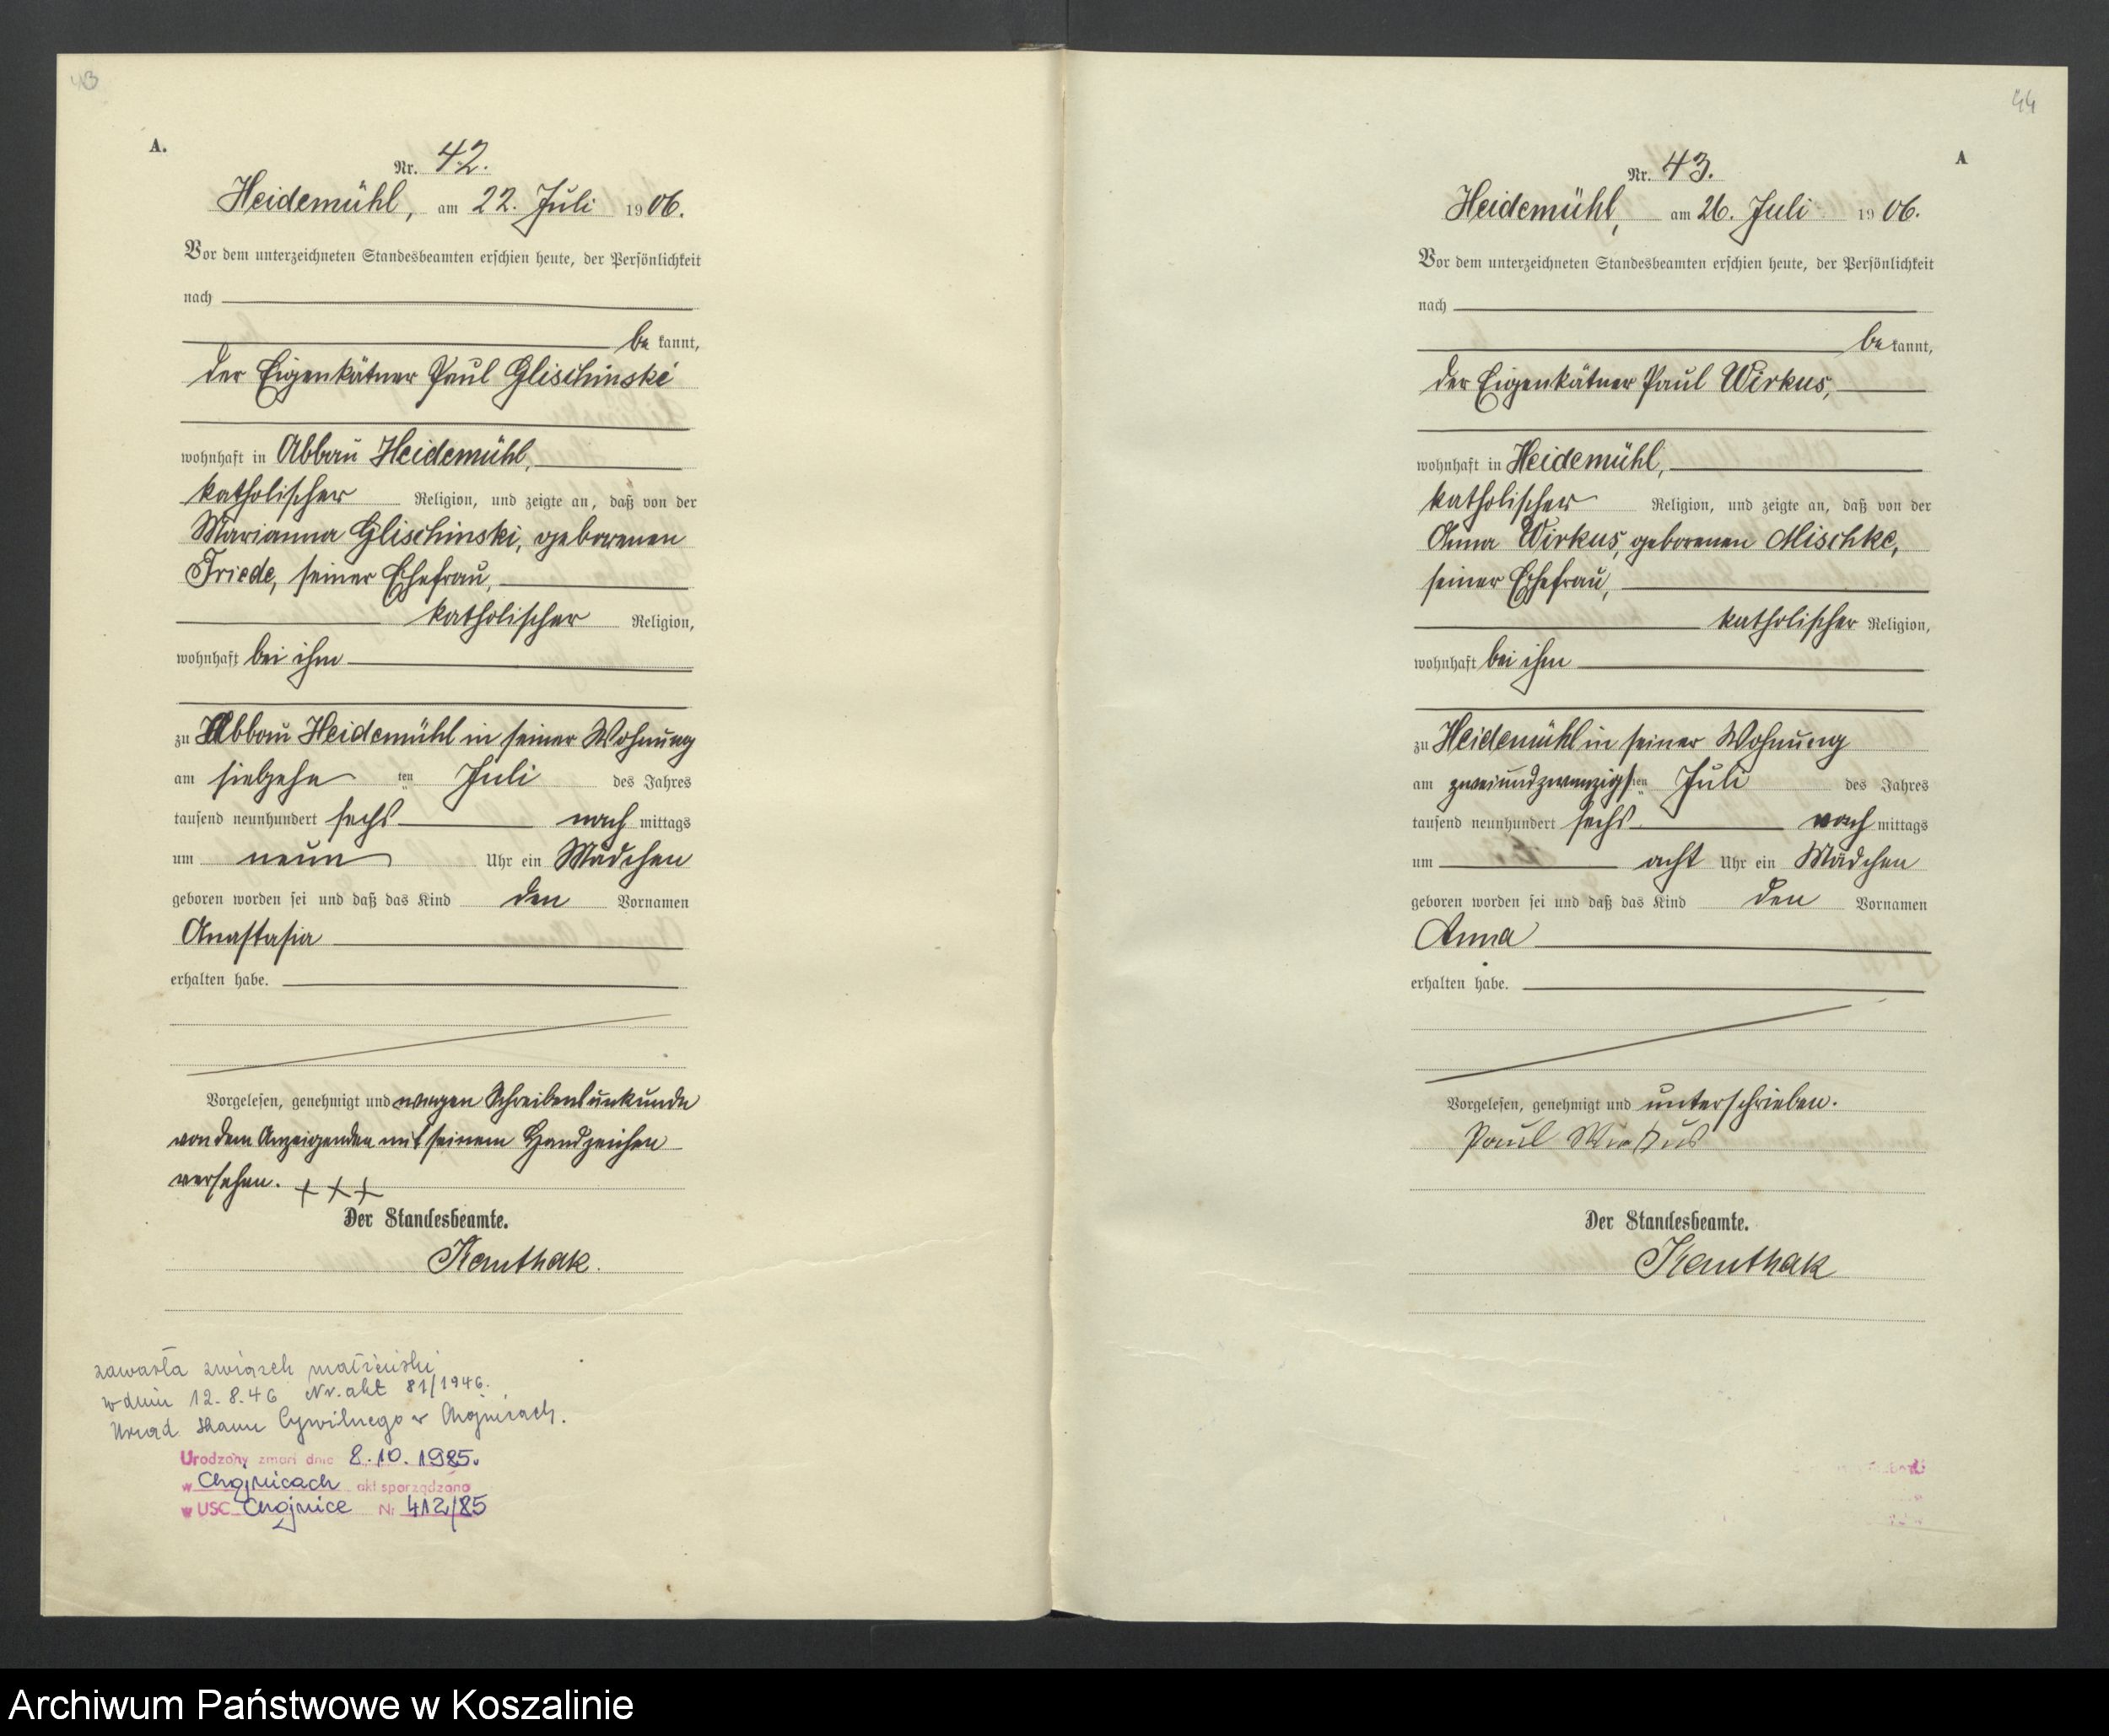 43
A.
Nr. 42.
Heidemühl, am 22. Juli 1906.
Vor dem unterzeichneten Standesbeamten erschien heute, der Persönlichkeit
nach
bekannt,
der Eigenkätner Paul Glischinski
wohnhaft in Abbau Heidemühl,
katholischer Religion, und zeigte an, daß von der
Marianna Glischinski, geborenen
Friede, seiner Ehefrau,
katholischer Religion,
wohnhaft bei ihm
zu Abbau Heidemühl in seiner Wohnung
am siebzehnten Juli des Jahres
tausend neunhundert sechs nachmittags
um neun Uhr ein Mädchen
geboren worden sei und daß das Kind den Vornamen
Anastasia
erhalten habe.
Vorgelesen, genehmigt und wegen Schreibensunkunde
von dem Anzeigenden mit seinem Handzeichen
versehen. + + +
Der Standesbeamte.
Kauthak.
zawarła związek małżeński
w dniu 12.8.46 Nr. akt 81/1946.
Urząd Stanu Cywilnego w Chojnicach.
Urodzony zmarł dnia 8.10.1985.
w Chojnicach akt sporządzono
w USC Chojnice Nr 412/85
44
A
Nr. 43.
Heidemühl, am 26. Juli 1906.
Vor dem unterzeichneten Standesbeamten erschien heute, der Persönlichkeit
nach
bekannt,
der Eigenkätner Paul Wirkus,
wohnhaft in Heidemühl,
katholischer Religion, und zeigte an, daß von der
Anna Wirkus, geborenen Mischke,
seiner Ehefrau,
katholischer Religion,
wohnhaft bei ihm
zu Heidemühl in seiner Wohnung
am zweiundzwanzigsten Juli des Jahres
tausend neunhundert sechs nachmittags
um acht Uhr ein Mädchen
geboren worden sei und daß das Kind den Vornamen
Anna
erhalten habe.
Vorgelesen, genehmigt und unterschrieben.
Paul Wirkus
Der Standesbeamte.
Kauthak
Archiwum Państwowe w Koszalinie